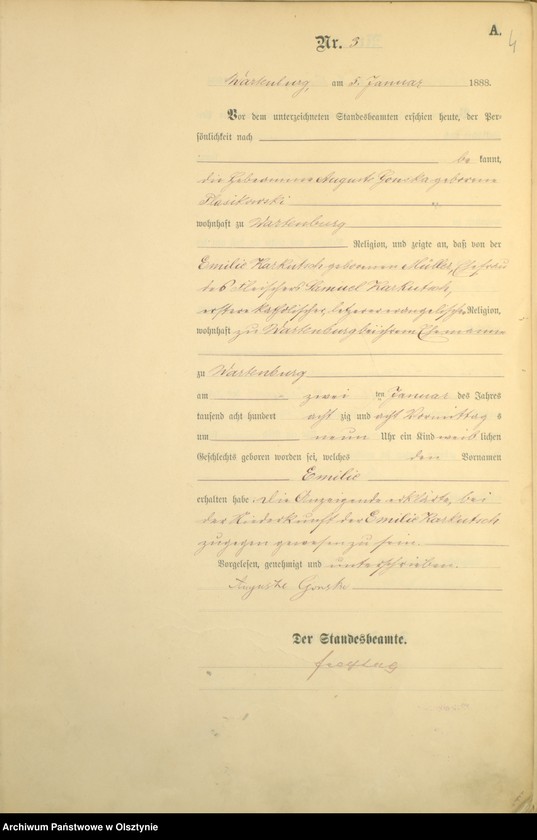 A.
4
Nr. 3
Wartenburg, am 5. Januar 1888.
Vor dem unterzeichneten Standesbeamten erschien heute, der Per-
sönlichkeit nach
be kannt,
die Hebeamme Auguste Gonska geborene
wohnhaft zu Wartenburg
Religion, und zeigte an, daß von der
Emilie Karkutsch geborenen Müller, Ehefrau
des Fleischers Samuel Karkutsch,
erstere katholischer, letzterer evangelischer Religion,
wohnhaft zu Wartenburg bei ihrem Ehemanne
zu Wartenburg
am zwei ten Januar des Jahres
tausend acht hundert acht zig und acht Vormittag s
um neun Uhr ein Kind weib lichen
Geschlechts geboren worden sei, welches den Vornamen
Emilie
erhalten habe. Die Anzeigende erklärte, bei
der Niederkunft der Emilie Karkutsch
zugegen gewesen zu sein.
Vorgelesen, genehmigt und unterschrieben.
Auguste Gonska
Der Standesbeamte.
Archiwum Państwowe w Olsztynie